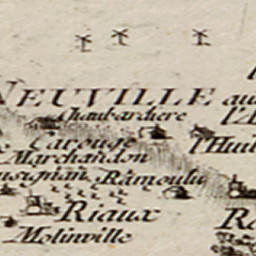 NEUVILLE au
Chaubardiere
l'Hui
Carouge
Marchandon
usignan Ramoulu
Riaux
Molinville